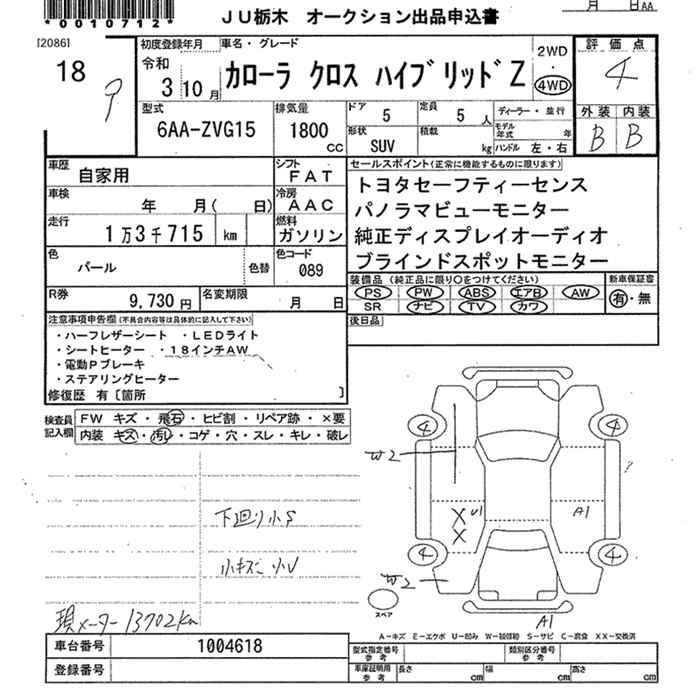 *0010712*
ＪＵ栃木 オークション出品申込書
月 日AA
[2086]
18
9
初度登録年月
令和
3 10 月
車名・グレード
カローラ クロス ハイブリッド Z
2WD
・
4WD
評価点
4
外装 内装
B B
型式
6AA-ZVG15
排気量
1800
CC
ドア
5
定員
5 人
形状
SUV
積載
kg
ディーラー・並行
モデル年式 年
ハンドル 左・右
車歴
自家用
シフト
FAT
車検
年 月( 日)
冷房
AAC
走行
1万3千715 km
燃料
ガソリン
色
パール
色替
色コード
089
R券
9,730円
名変期限
月 日
セールスポイント(正常に機能するものに限ります)
トヨタセーフティーセンス
パノラマビューモニター
純正ディスプレイオーディオ
ブラインドスポットモニター
装備品(純正品に限り○をつけてください)
PS PW ABS エアB AW
SR ナビ TV カワ
新車保証書
有・無
後日品
注意事項申告欄(不具合内容等は具体的に記入して下さい)
・ハーフレザーシート ・LEDライト
・シートヒーター ・18インチAW
・電動Pブレーキ
・ステアリングヒーター
修復歴 有〔箇所 〕
検査員記入欄
FW キズ・飛石・ヒビ割・リペア跡・×要
内装 キズ・汚レ・コゲ・穴・スレ・キレ・破レ
下廻り小S
小キズ 小U
現メーター13702km
4
4
W2
X U1
X
A1
4
4
W2
A1
スペア
A-キズ E-エクボ U-凹み W-補修跡 S-サビ C-腐食 XX-交換済
車台番号
1004618
登録番号
型式指定番号
参考
類別区分番号
参考
車庫証明用
参考
長さ cm
幅 cm
高さ cm